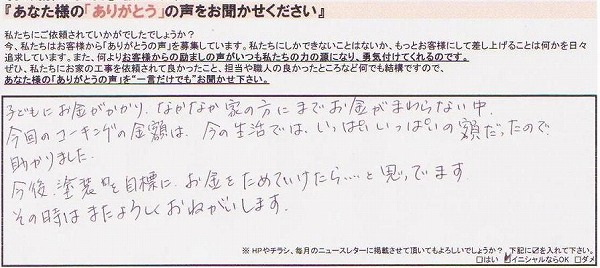 『あなた様の「ありがとう」の声をお聞かせください』
私たちにご依頼されていかがでしたでしょうか？
今、私たちはお客様から「ありがとうの声」を募集しています。私たちにしかできないことはないか、もっとお客様にして差し上げることは何かを日々
追求しています。また、何よりお客様からの励ましの声がいつも私たちの力の源になり、勇気付けてくれるのです。
ぜひ、私たちにお家の工事を依頼されて良かったこと、担当や職人の良かったところなど何でも結構ですので、
あなた様の「ありがとうの声」を“一言だけでも”お聞かせ下さい。
子どもにお金がかかり、なかなか家の方にまでお金がまわらない中、
今回のコーキングの金額は、今の生活では、いっぱいいっぱいの額だったので
助かりました。
今後、塗装を目標に、お金をためていけたら……と思ってます
その時はまたよろしくおねがいします。
※HPやチラシ、毎月のニュースレターに掲載させて頂いてもよろしいでしょうか？ 下記に☑を入れて下さい。
□はい ☑イニシャルならOK □ダメ